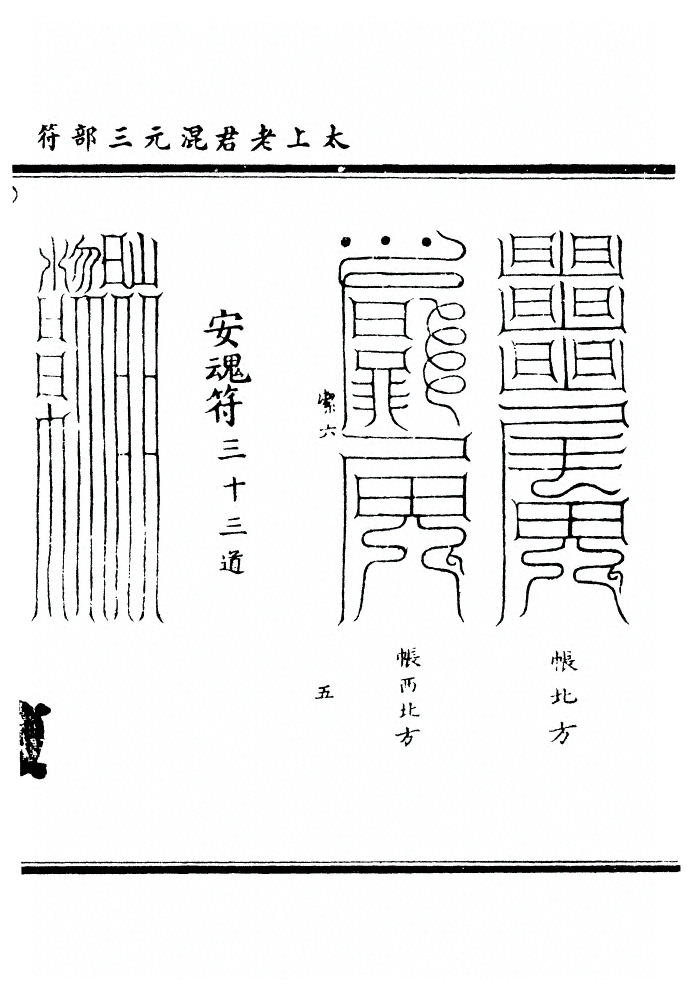 太上老君混元三部符
帳北方
帳西北方
五
安魂符三十三道